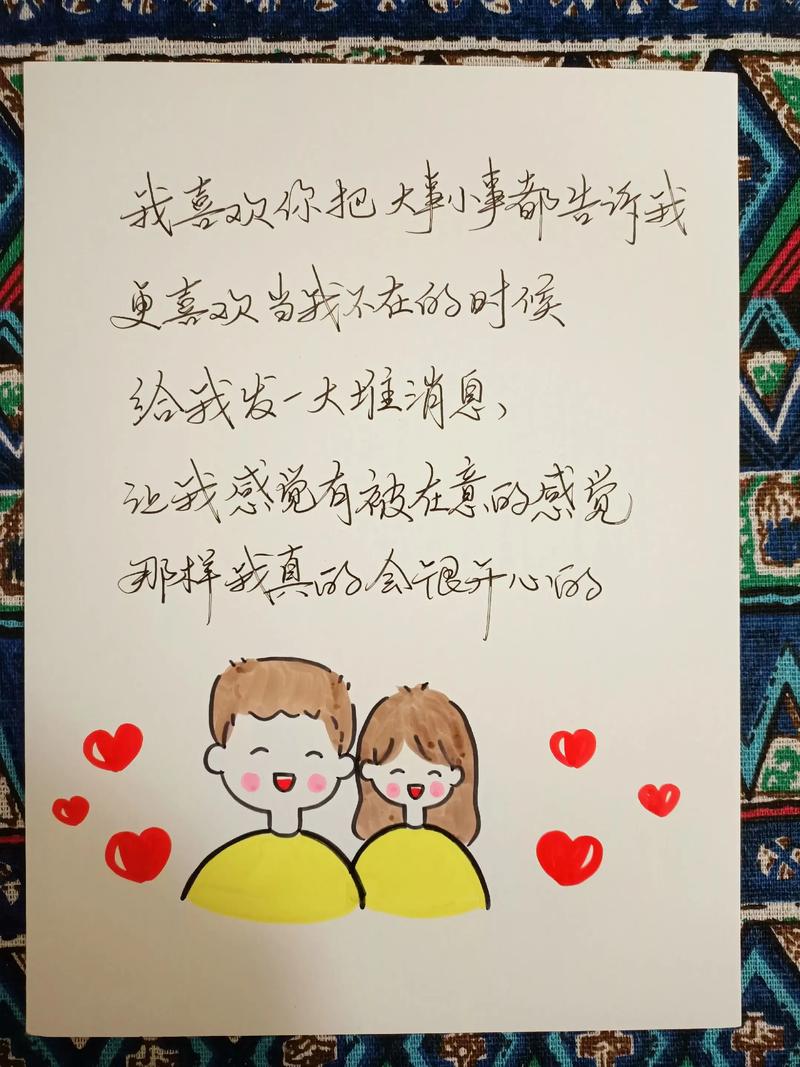 我喜欢你把大事小事都告诉我
更喜欢当我不在的时候
给我发一大堆消息,
让我感觉有被在意的感觉
那样我真的会很开心的